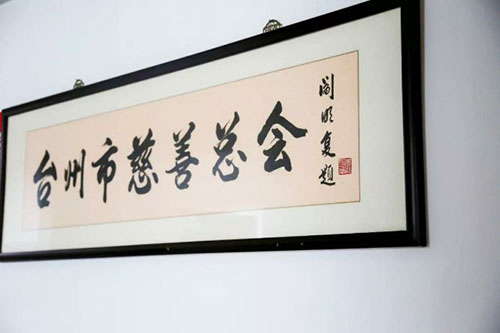 台州市慈善总会
阎明复题